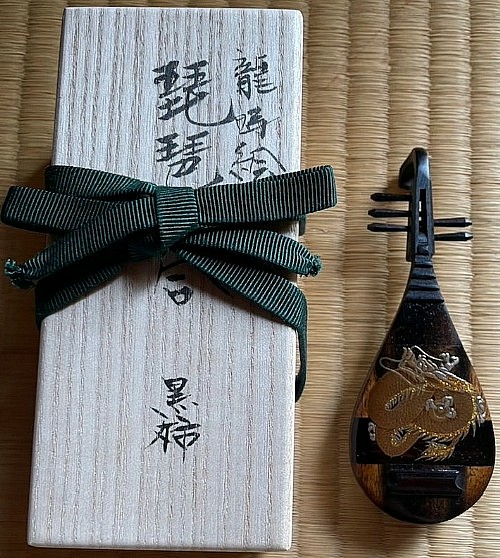 龍蒔絵
琵琶 合
黒柿